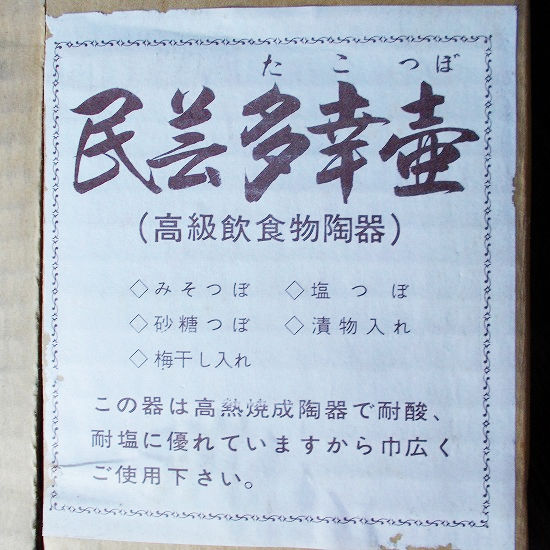 たこつぼ
民芸多幸壷
(高級飲食物陶器)
◇みそつぼ ◇塩つぼ
◇砂糖つぼ ◇漬物入れ
◇梅干し入れ
この器は高熱焼成陶器で耐酸、
耐塩に優れていますから巾広く
ご使用下さい。